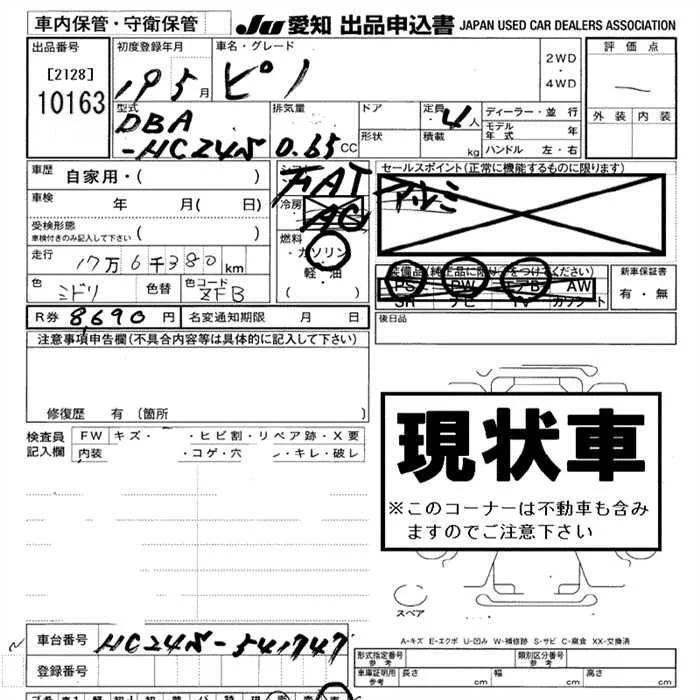 車内保管・守衛保管
JU 愛知 出品申込書 JAPAN USED CAR DEALERS ASSOCIATION
出品番号 初度登録年月 車名・グレード 評価点
[2128]
10163
19 5月 ピノ
2WD
・
4WD
外装 内装
型式 排気量 ドア 定員 4人 ディーラー・並行
DBA
-HC24S 0.65 CC
形状 積載 kg
モデル年式 年
ハンドル 左・右
車歴 自家用・( )
車検 年 月( 日)
受検形態 ( )
車検付きのみ記入して下さい
走行 17万6千380km
色 ミドリ 色替 色コード ZFB
R券 8,690円 名変通知期限 月 日
シフト
AT
冷房 AC
燃料
・ガソリン
・軽・油
( )
セールスポイント(正常に機能するものに限ります)
アルミ
装備品(純正品に限り○をつけてください)
PS PW エアB AW
SR ナビ TV カワシート
新車保証書
有・無
後日品
注意事項申告欄(不具合内容等は具体的に記入して下さい)
修復歴 有 〔箇所 〕
検査員
記入欄
FW キズ・ ・ヒビ割・リペア跡・X要
内装 ・コゲ・穴 ・キレ・破レ
現状車
※このコーナーは不動車も含み
ますのでご注意下さい
スペア
A-キズ E-エクボ U-凹み W-補修跡 S-サビ C-腐食 XX-交換済
車台番号 HC24S-541747
登録番号
形式指定番号
参考
類別区分番号
参考
車庫証明用
参考
長さ cm 幅 cm 高さ cm